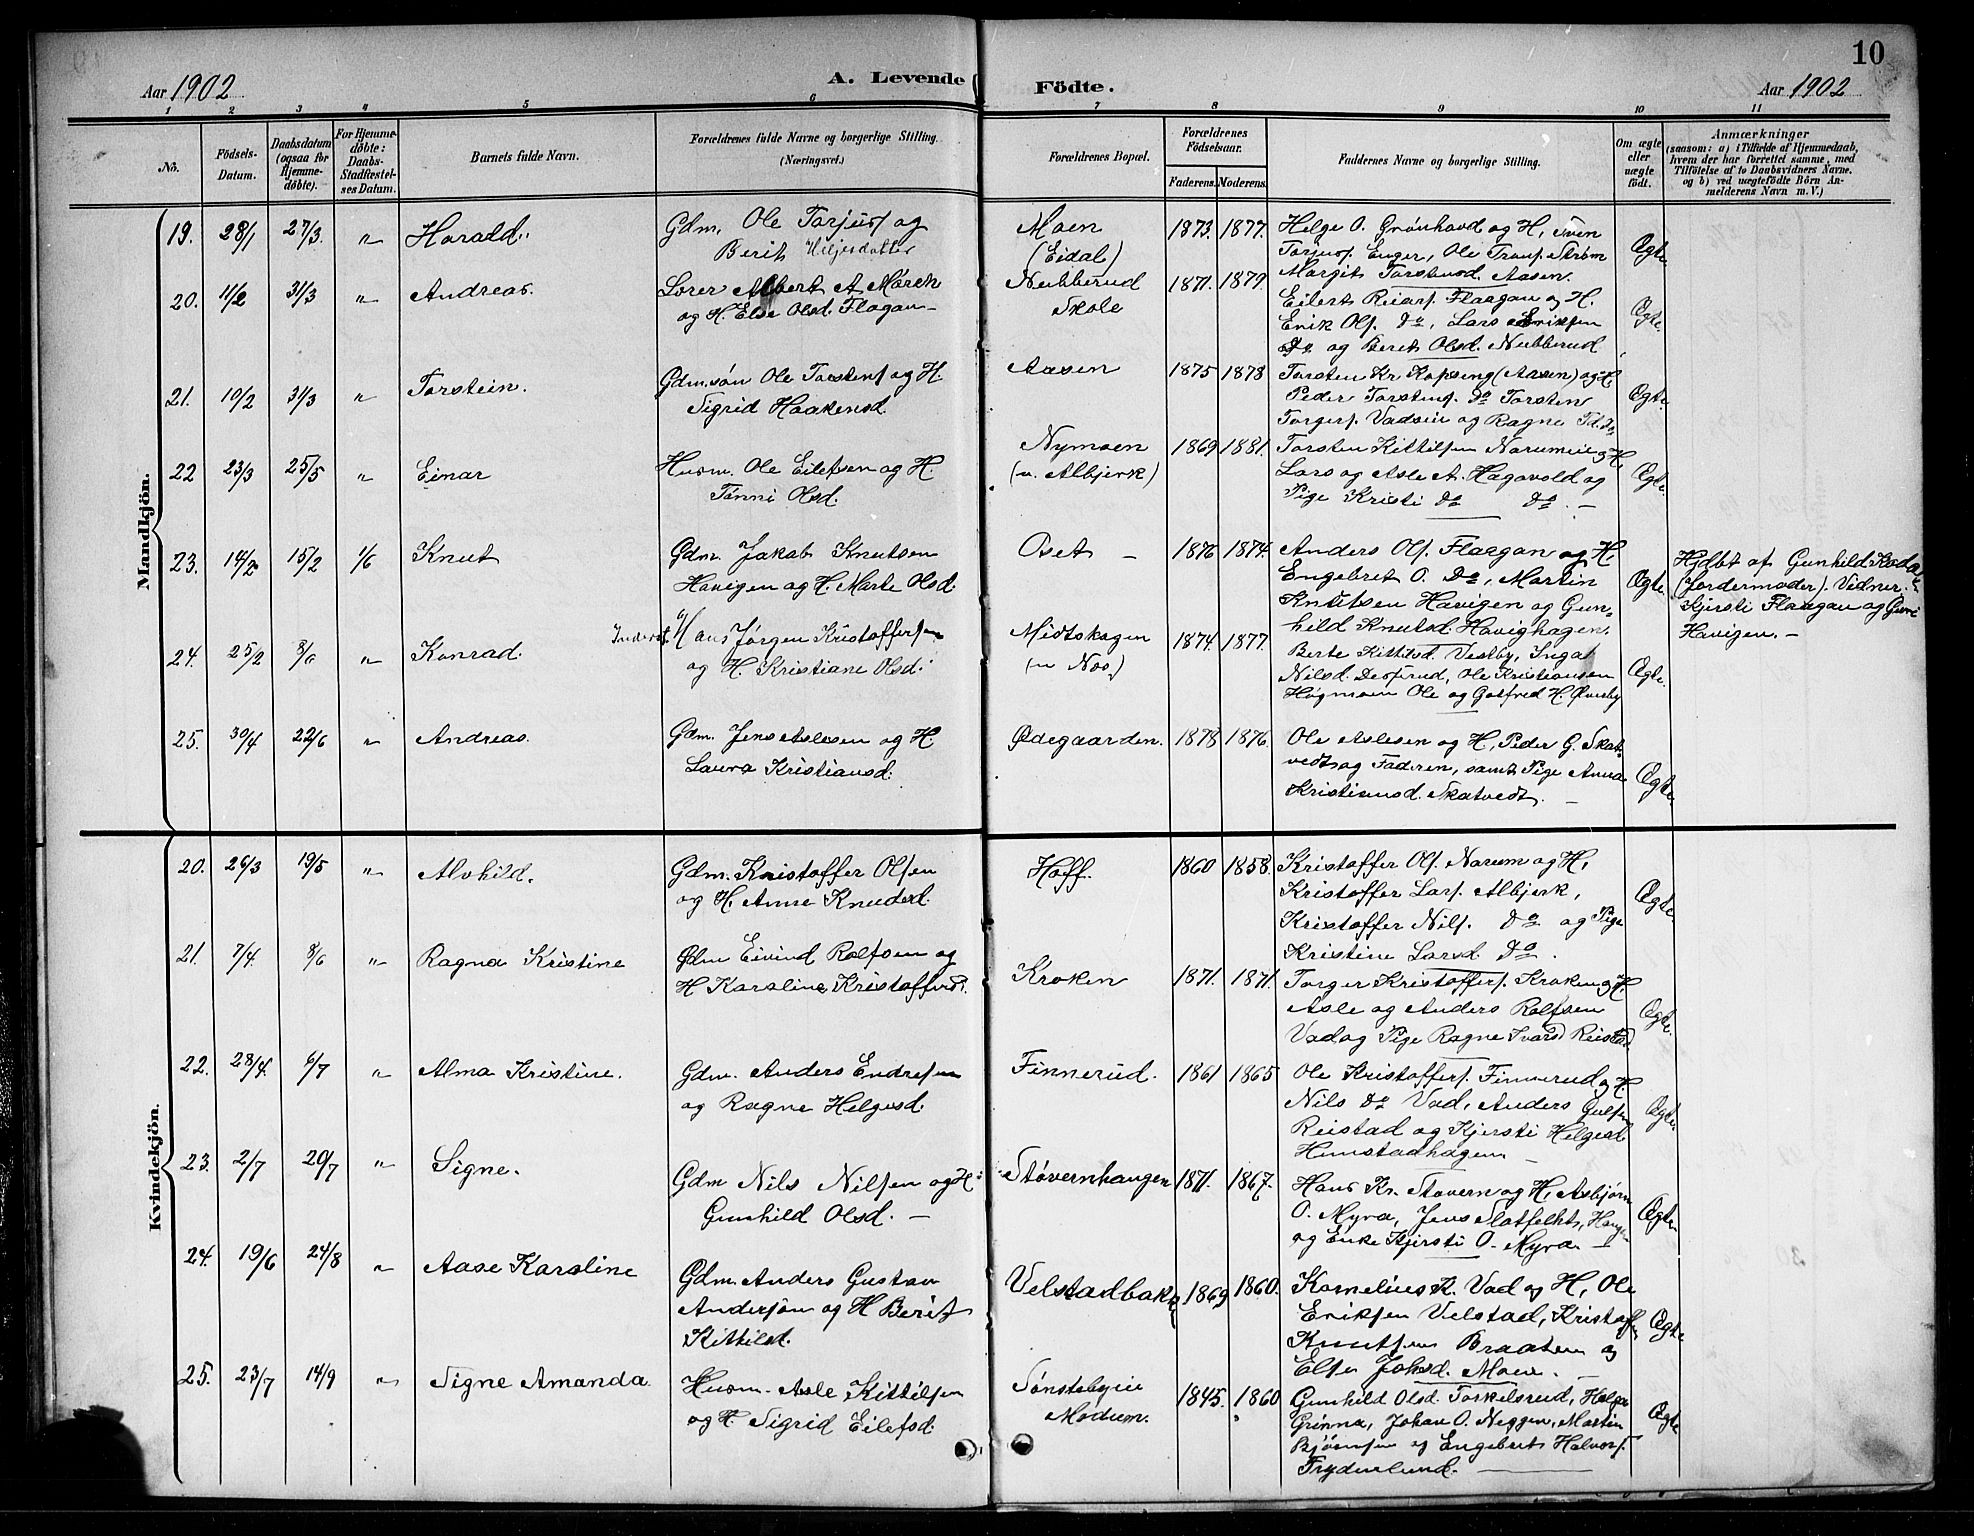 10
Aar 1902
A. Levende Födte.
Aar 1902
1 2 3 4 5 6 7 8 9 10 11
No.
Födsels-Datum.
Daabsdatum (ogsaa for Hjemme-døbte).
For Hjemme-døbte: Daabs-Stadfæstel-ses Datum.
Barnets fulde Navn.
Forældrenes fulde Navne og borgerlige Stilling. (Næringsvei.)
Forældrenes Bopæl.
Forældrenes Födselsaar.
Faderens. Moderens.
Faddernes Navne og borgerlige Stilling.
Om ægte eller uægte født.
Anmærkninger
(saasom: a) i Tilfælde af Hjemmedaab, hvem der har forrettet samme, med Tilföielse af to Daabsvidners Navne, og b) ved uægtefödte Börn An-melderens Navn m. V.)
Mandkjön.
19. 28/1 27/3. " Harald. Gdm. Ole Torjusf og
Berit Viljesdatter
Moen (Eidal) 1873. 1877. Helge O. Grønhovd og H, Sven
Torjusf. Enger, Ole Strøm
Margit Torstensd. Aasen. Ægte.
20. 11/2 31/3 " Andreas. Lærer Albert A Mörck
og H. Else Olsd. Flagan
Nubberud Skole 1871. 1879. Eilert Reiarf. Flaagan og H.
Erik Olf. Do, Lars Eriksen
Do og Berit Olsd. Nubberud Ægte.
21. 10/2 31/3 " Torstein. Gdm.søn Ole Torstenf og H.
Sigrid Haakensd.
Aasen 1875 1878 Torsten Kr. Kopseng (Aasen) og H,
Peder Torstenf. Do Torsten
Torgerf. Vadseie og Ragne Td. Do Ægte.
22 23/3 25/5 " Einar Husm. Ole Eilefsen og H
Tønni Olsd.
Nymoen (u. Albjerk) 1869 1881. Torsten Kittilsen Narumeie og H,
Lars og Asle A. Hagavold og
Pige Kristi Do Do. Ægte.
23. 14/2 15/2 1/6 Knut Gdm. Jakob Knutsen
Havigen og H. Marte Olsd.
Oset 1876 1874. Anders Olf. Flaagan og H,
Engebret O. Do, Martin
Knutsen Havigen og Gun-
hild Knutsd. Havighagen. Ægte.
Hjdbt af Gunhild
(Jordermoder). Vidner:
Kjersti Flaagan og Guri
Havigen.
24. 25/2 8/6 " Konrad. Inderst Hans Jørgen Kristoffersen
og H. Kristiane Olsd.
Midtskogen (u Nøs) 1874. 1877. Berte Kittilsd. Vestby, Inga
Nilsd. Desserud, Ole Kristiansen
Høgmoen Ole og Gotfred H. Ægte.
25. 30/4 22/6 " Andreas. Gdm. Jens Aslesen og H
Laura Kristiansd.
Ødegaarden. 1878 1876. Ole Aslesen og H, Peder G. Skat-
vedt og Faderen, samt Pige Anna
Kristiansd. Skatvedt. Ægte.
Kvindekjön.
20. 26/3 19/5 " Alvhild. Gdm. Kristoffer Olsen
og H Anne Knudsd.
Hoff. 1860 1858. Kristoffer Olf. Narum og H,
Kristoffer Larf. Albjerk,
Kristoffer Nilf. Do og Pige
Kristine Larsd Do. Ægte.
21. 7/4 8/6 " Ragna Kristine Gdm Eivind Rolfsen og
H Karoline Kristoffersd.
Kroken 1871. 1871. Torger Kristofferf. Kroken og H.
Asle og Anders Rolfsen
Vad og Pige Ragne Ivarsd Reistad. Ægte.
22. 28/4. 6/7 " Alma Kristine. Gdm. Anders Endresen
og Ragne Helgesd.
Finnerud. 1861 1865 Ole Kristofferf. Finnerud og H.
Nils Do Vad, Anders Gulsen
Reistad og Kjersti Helgesd.
Himstadhagen Ægte.
23. 2/7 20/7 " Signe. Gdm Nils Nilsen og H.
Gunhild Olsd.
Støvernhaugen 1871. 1867. Hans Kr. Støvern og H, Asbjørn
O. Myra, Jens Slatfelht, Haugen
og Enke Kjersti O. Myra. Ægte.
24. 19/6 24/8 " Aase Karoline Gdm. Anders Gustav
Andersön og H Berit
Kittilsd.
Velstadbakk 1869 1860. Kornelius K. Vad og H, Ole
Eriksen Velstad, Kristoffer
Knutsen Braaten og
Else Johsd. Moen. Ægte
25. 23/7 14/9 " Signe Amanda. Husm. Asle Kittilsen
og H. Sigrid Eilefsd.
Sønstebyeie Modum. 1845. 1860 Gunhild Olsd. Torkelsrud, Helge
Grinna, Johan O. Neggen, Martin
Bjørnsen og Engebret Halvorf.
Tryderlund. Ægte